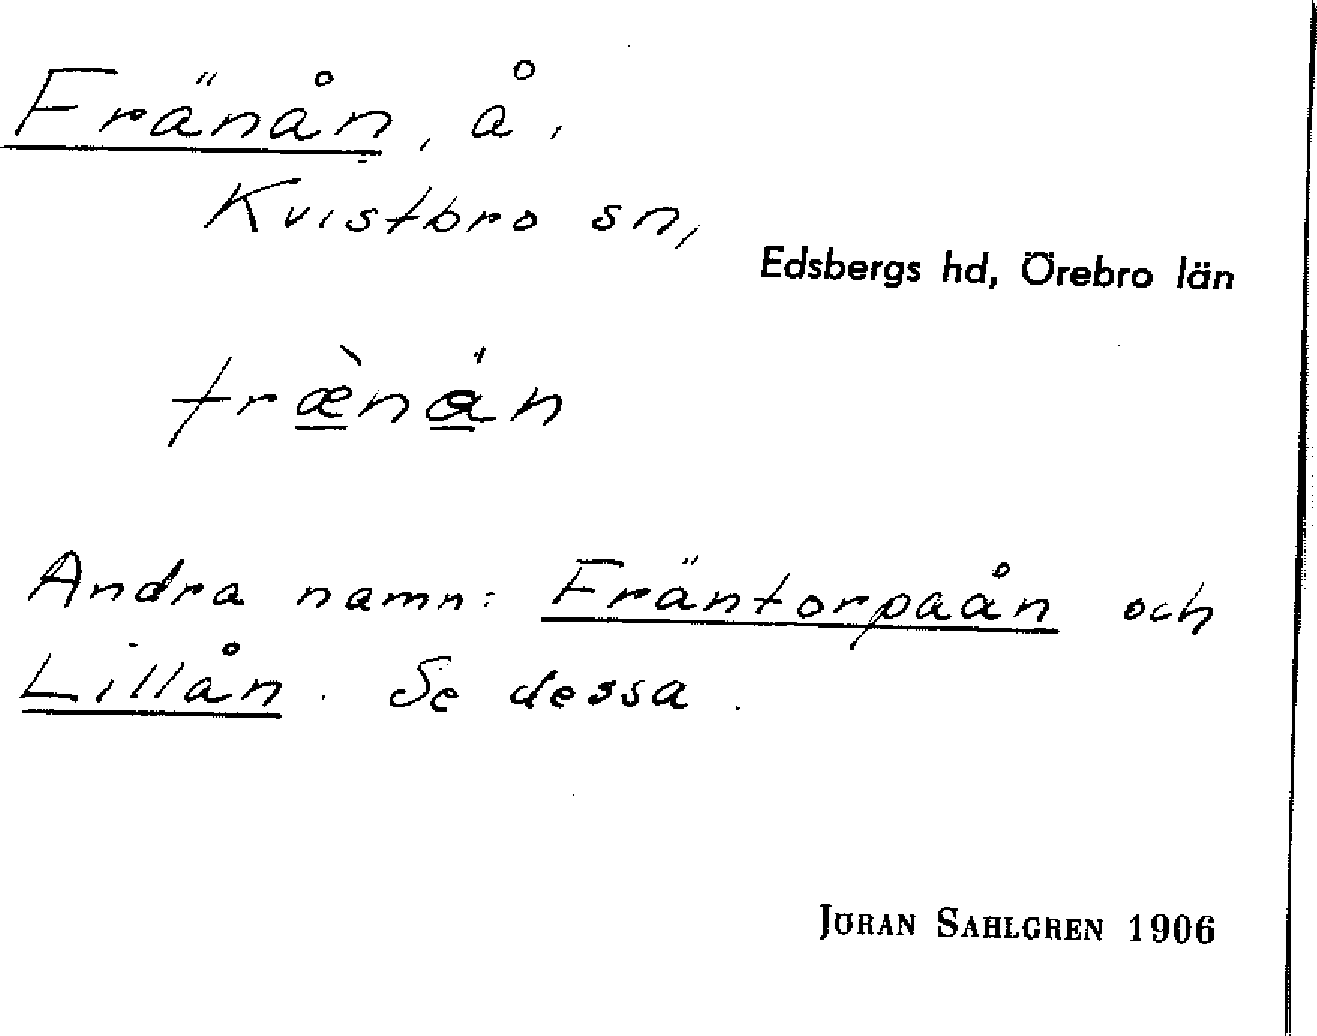 Fränån, å,
Kvistbro sn,
Edsbergs hd, Örebro län
fræ̀nån
Andra namn: Fräntorpaån och
Lillån. Se dessa.
JÖRAN SAHLGREN 1906